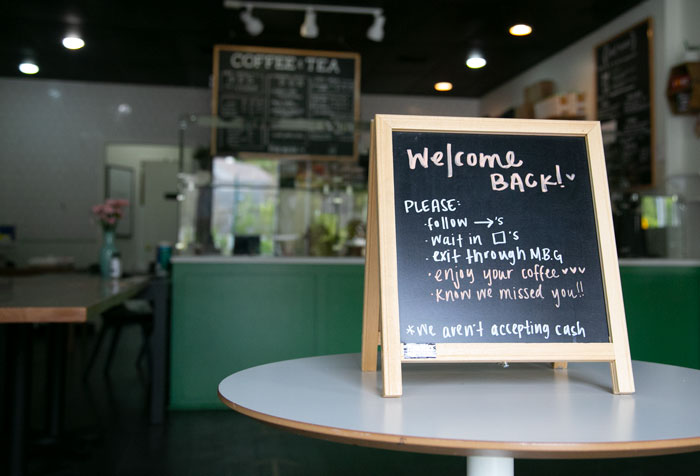 COFFEE + TEA
Welcome
BACK! ♥
PLEASE:
· follow →'s
· wait in □'s
· exit through M.B.G
· enjoy your coffee ♥♥♥
· know we missed you!!
*we aren't accepting cash